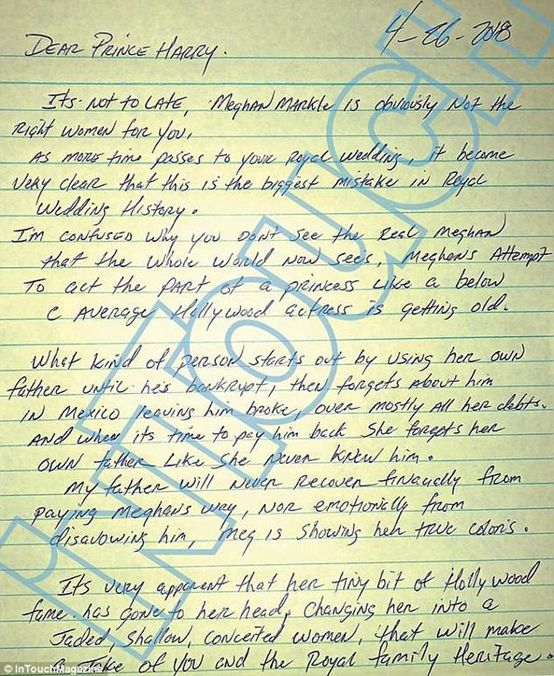 4-26-2018
Dear Prince Harry.
Its not to late, Meghan Markle is obviously Not the
Right women for you,
As more time passes to your Royal Wedding, it became
Very clear that this is the biggest mistake in Royal
Wedding History.
Im confused why you don't see the Real Meghan
that the whole world now sees, Meghan's Attempt
To act the part of a princess like a below
C average Hollywood actress is getting old.
What kind of person starts out by using her own
father until he's bankrupt, then forgets about him
IN Mexico leaving him broke, over mostly all her debts.
And when its time to pay him back she forgets her
own father like she never knew him.
My father will never recover finacually from
paying Meghans way, nor emotionally from
disavowing him, Meg is showing her true colors.
Its very apparent that her tiny bit of Hollywood
fame has gone to her head, Changing her into a
Jaded, shallow, conceited women, that will make
A Joke of you and the Royal family Heritage.
InTouch
© InTouchMagazine